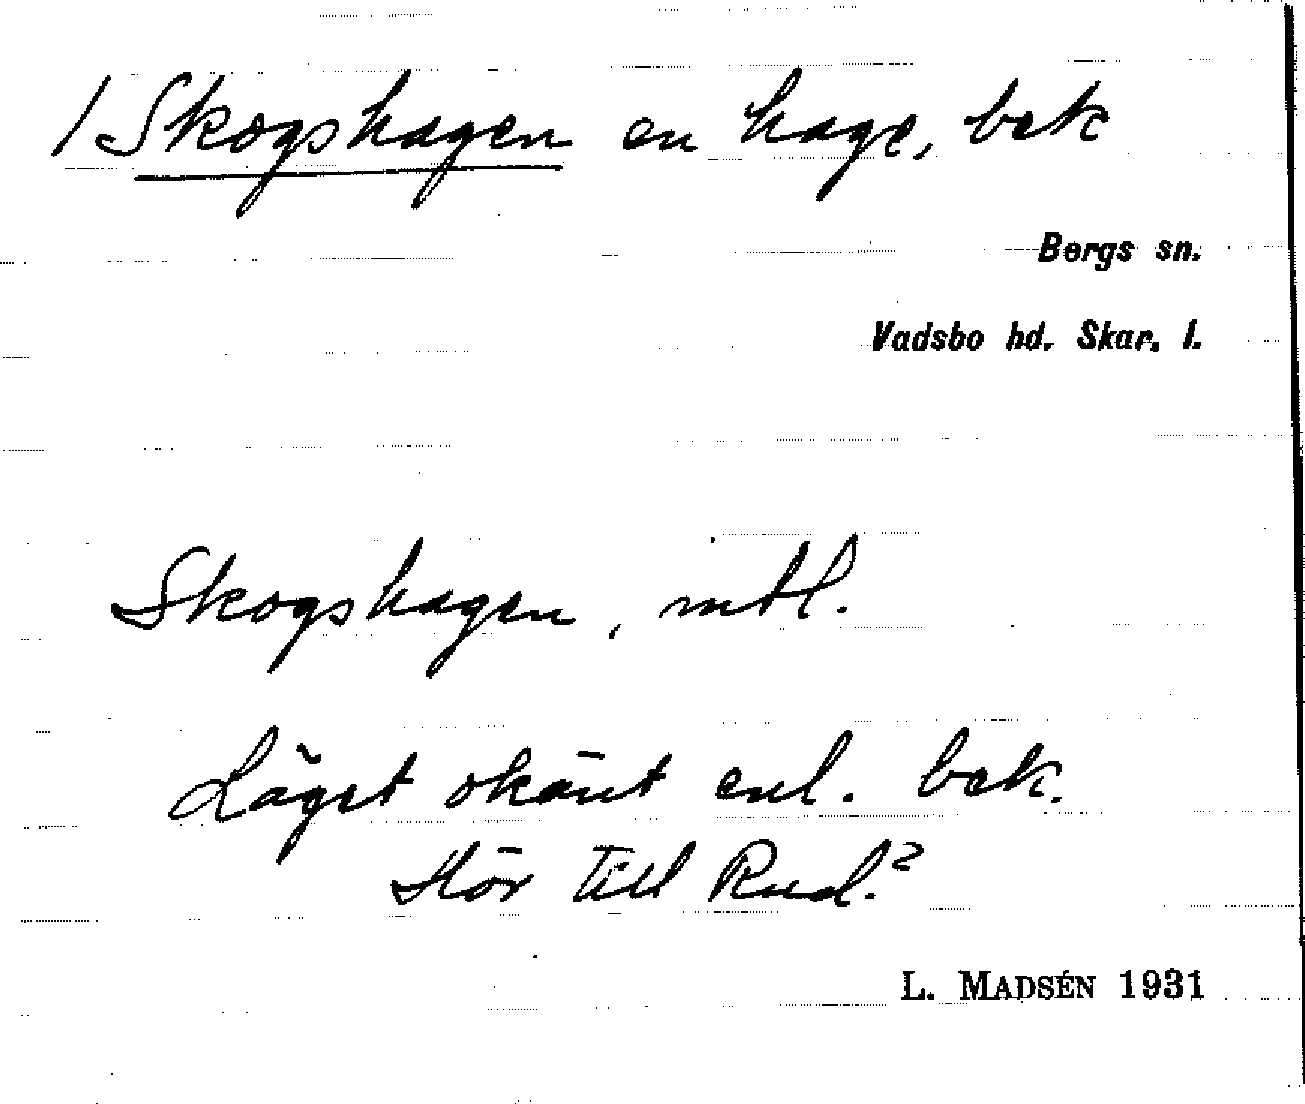 / Skogshagen en hage, bek
Bergs sn.
Vadsbo hd. Skar. l.
Skogshagen, mtl.
Läget okänt enl. bek.
Hör till Rud.?
L. MADSÉN 1931